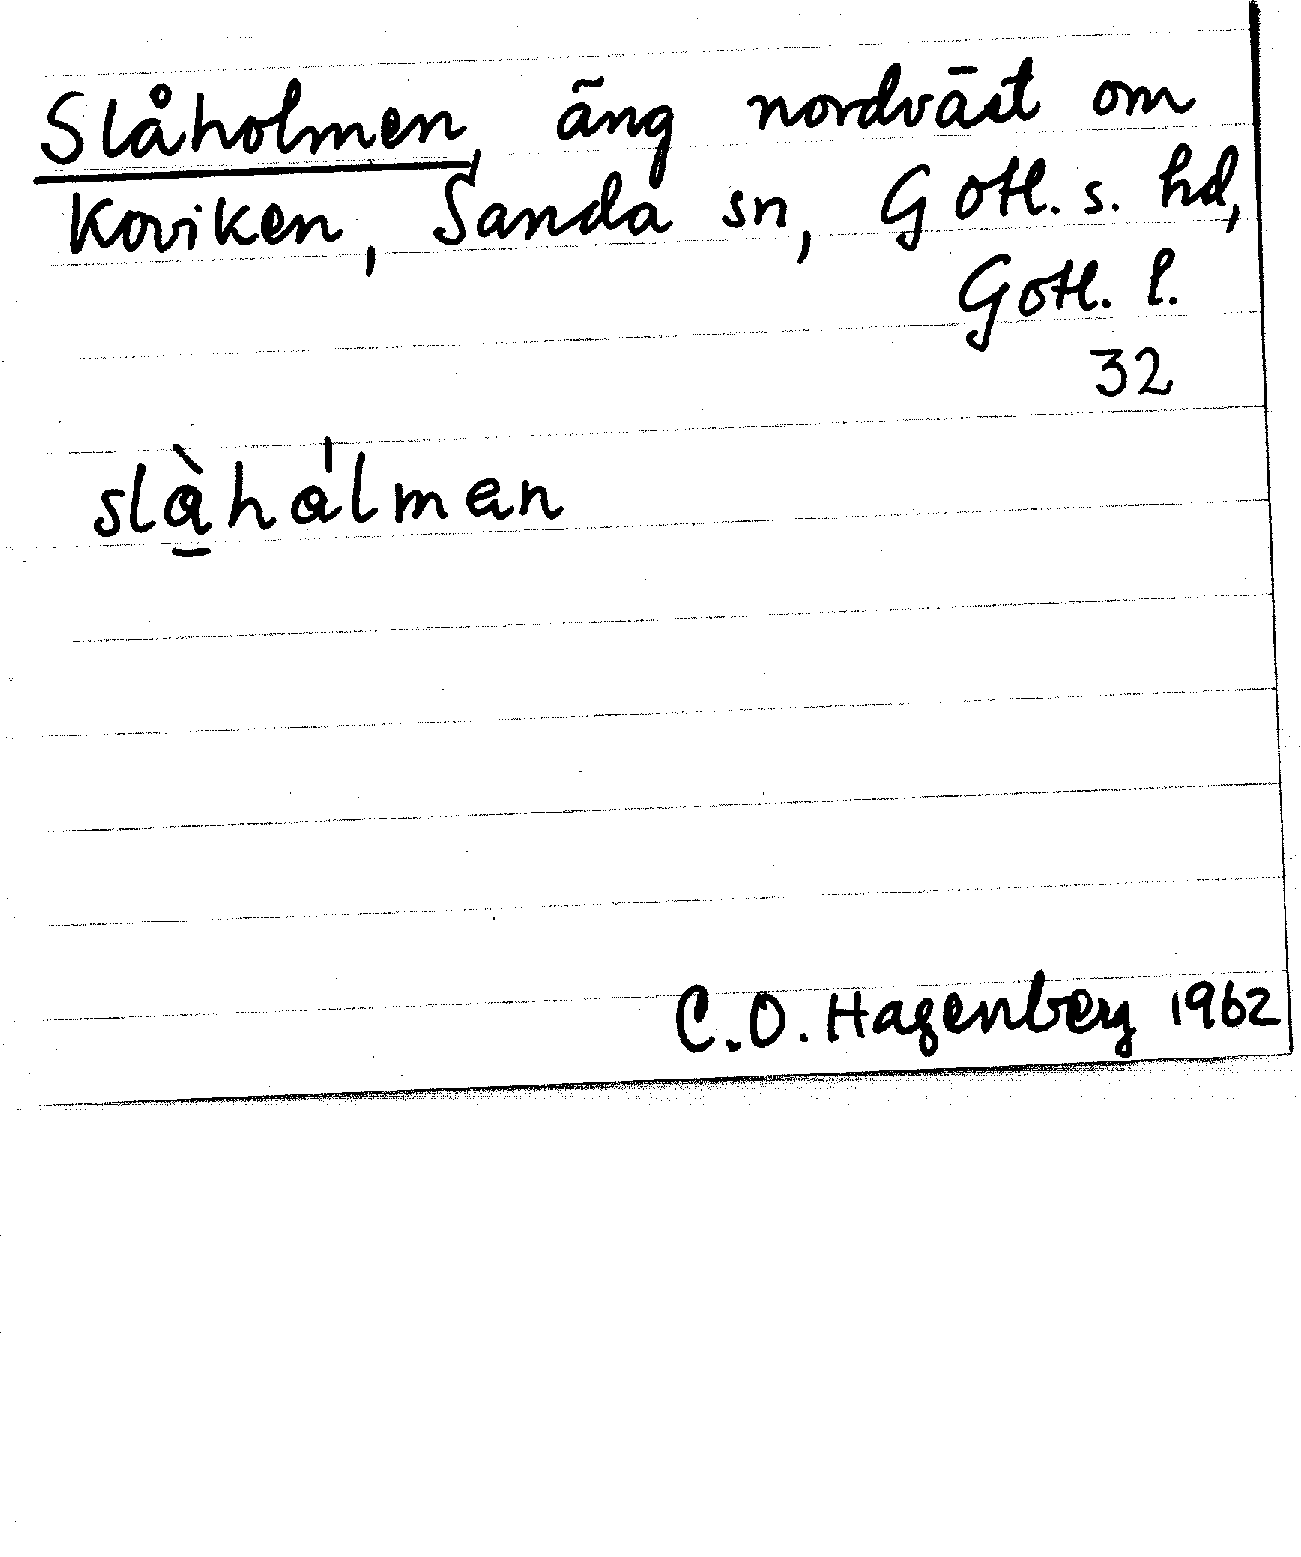 Slåholmen, äng nordväst om
Koviken, Sanda sn, Gotl. s. hd,
Gotl. l.
32
slàhálmen
C.O. Hagenberg 1962